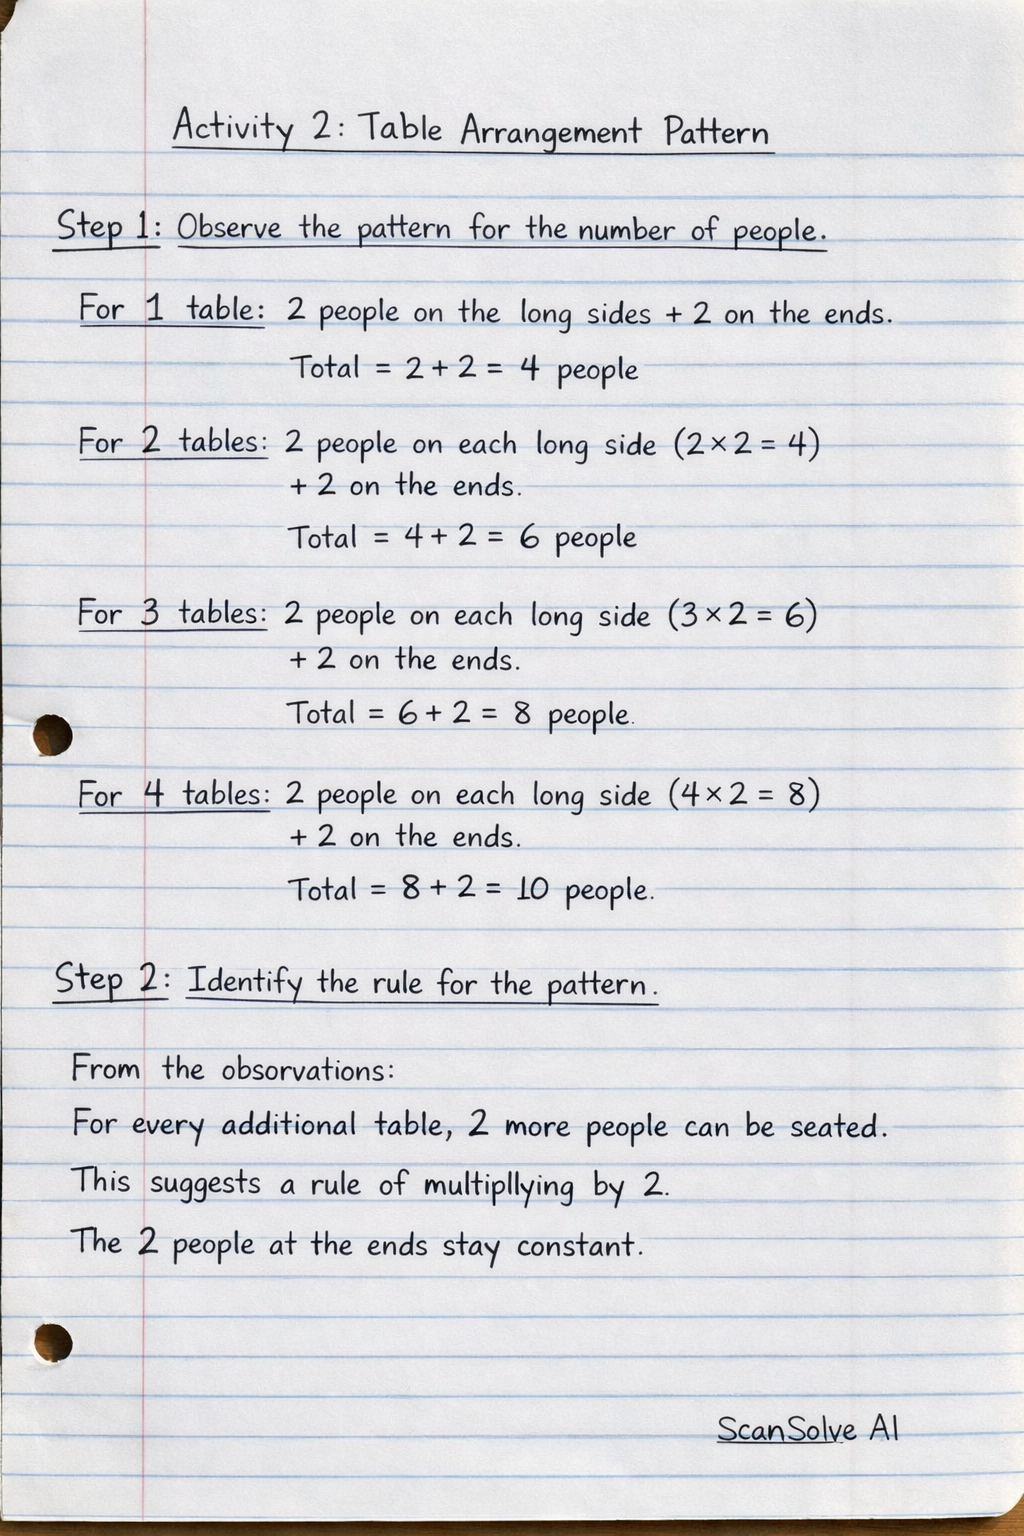 Activity 2: Table Arrangement Pattern
Step 1: Observe the pattern for the number of people.
For 1 table: 2 people on the long sides + 2 on the ends.
Total = 2 + 2 = 4 people
For 2 tables: 2 people on each long side (2 × 2 = 4)
+ 2 on the ends.
Total = 4 + 2 = 6 people
For 3 tables: 2 people on each long side (3 × 2 = 6)
+ 2 on the ends.
Total = 6 + 2 = 8 people.
For 4 tables: 2 people on each long side (4 × 2 = 8)
+ 2 on the ends.
Total = 8 + 2 = 10 people.
Step 2: Identify the rule for the pattern.
From the obsorvations:
For every additional table, 2 more people can be seated.
This suggests a rule of multipllying by 2.
The 2 people at the ends stay constant.
ScanSolve AI